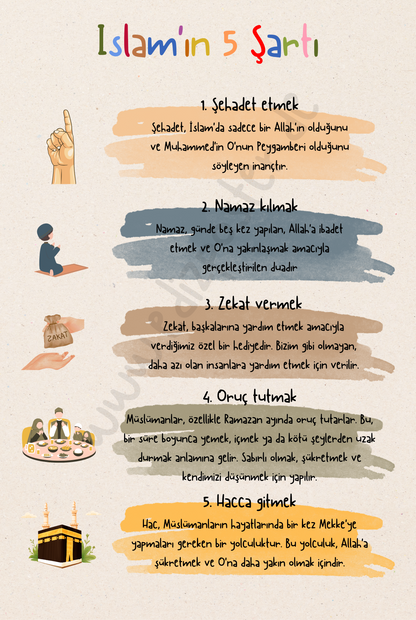 İslam'ın 5 Şartı
1. Şehadet etmek
Şehadet, İslam'da sadece bir Allah'ın olduğunu
ve Muhammed'in O'nun Peygamberi olduğunu
söyleyen inançtır.
2. Namaz kılmak
Namaz, günde beş kez yapılan, Allah'a ibadet
etmek ve O'na yakınlaşmak amacıyla
gerçekleştirilen duadır
3. Zekat vermek
Zekat, başkalarına yardım etmek amacıyla
verdiğimiz özel bir hediyedir. Bizim gibi olmayan,
daha azı olan insanlara yardım etmek için verilir.
ZAKAT
4. Oruç tutmak
Müslümanlar, özellikle Ramazan ayında oruç tutarlar. Bu,
bir süre boyunca yemek, içmek ya da kötü şeylerden uzak
durmak anlamına gelir. Sabırlı olmak, şükretmek ve
kendimizi düşünmek için yapılır.
5. Hacca gitmek
Hac, Müslümanların hayatlarında bir kez Mekke'ye
yapmaları gereken bir yolculuktur. Bu yolculuk, Allah'a
şükretmek ve O'na daha yakın olmak içindir.